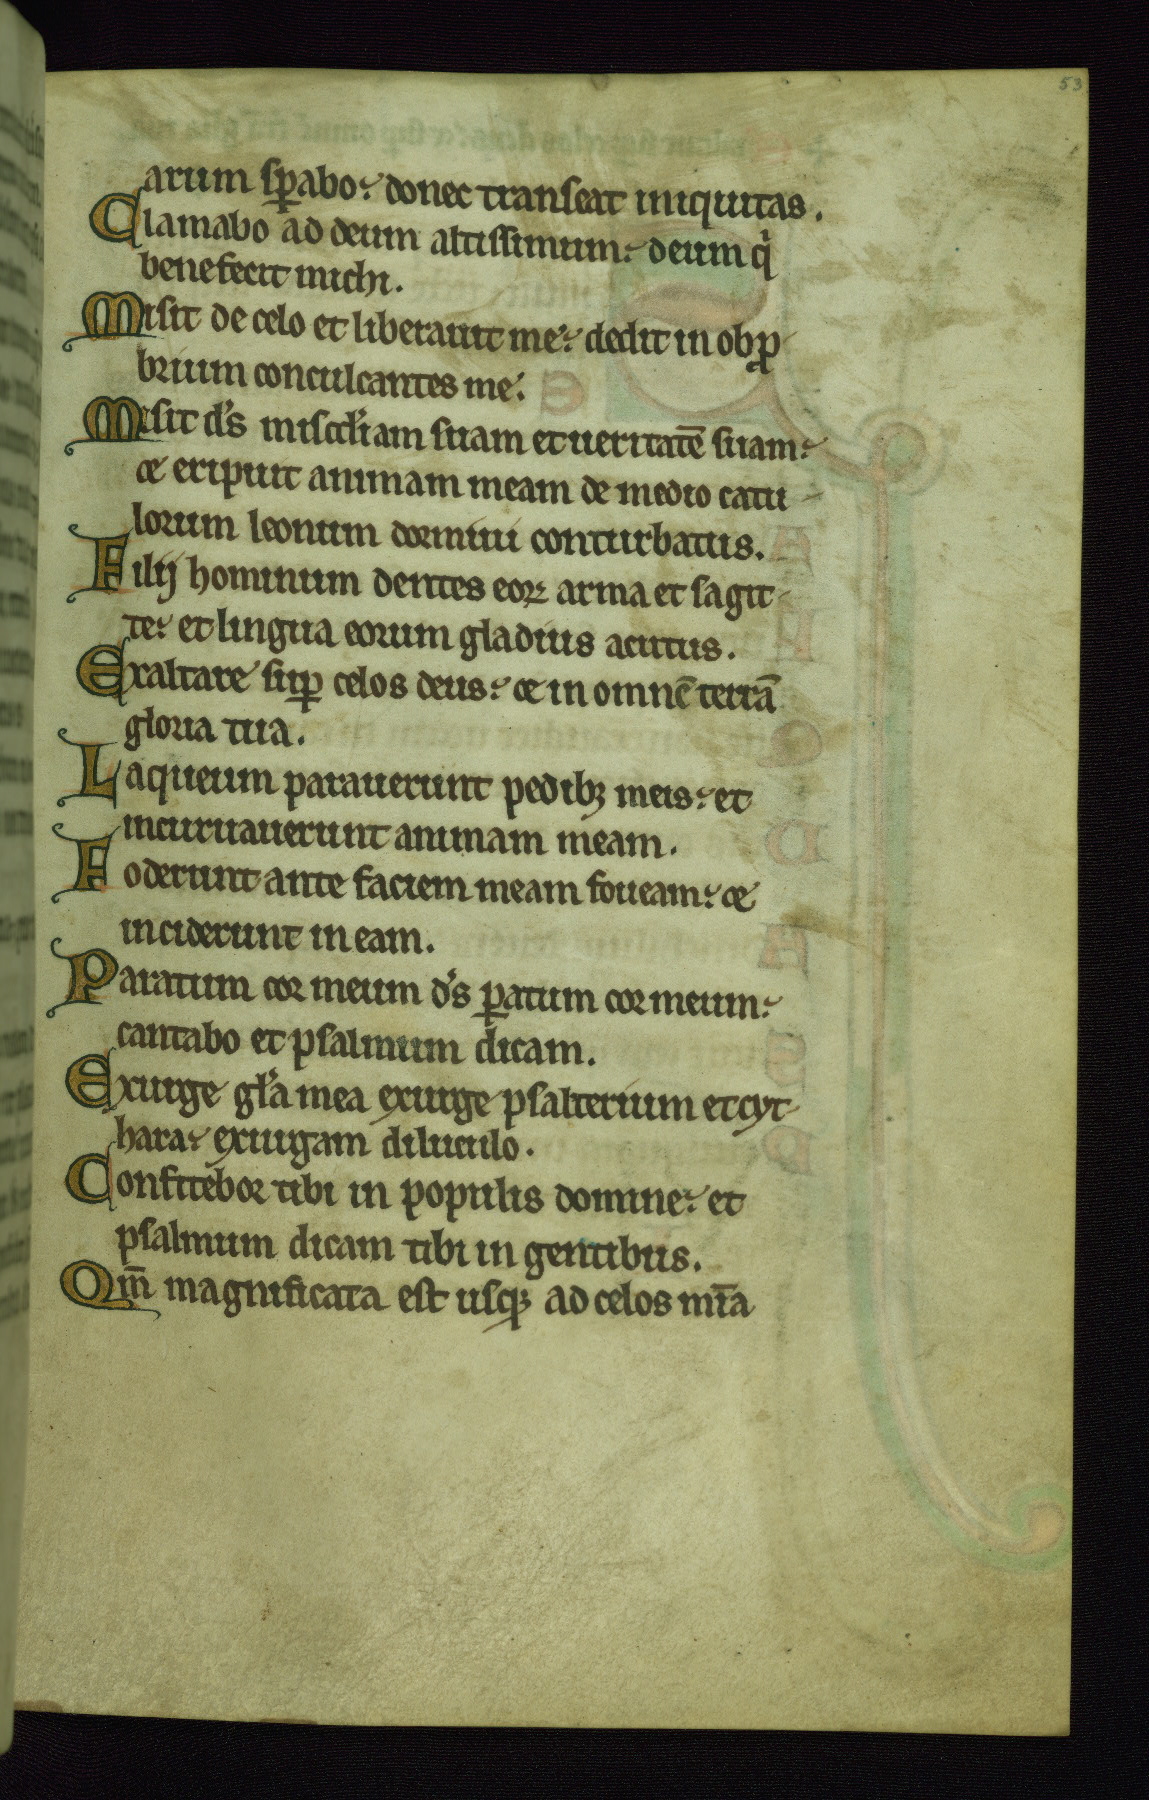 53
arum sꝑabo: donec transeat iniquitas.
Clamabo ad deum altissimum: deum qͥ
benefecit michi.
Misit de celo et liberauit me: dedit in obꝓ
brium conculcantes me.
Misit dꝰs miscd̾iam suam et ueritatē suam:
⁊ eripuit animam meam de medio catu
lorum leonum dormiui conturbatus.
Filij hominum dentes eoꝝ arma et sagit
te: et lingua eorum gladius acutus.
Exaltare suꝑ celos deus: ⁊ in omnē terrā
gloria tua.
Laqueum parauerunt pedibꝫ meis: et
incuruauerunt animam meam.
Foderunt ante faciem meam foueam: ⁊
inciderunt in eam.
Paratum cor meum d̾s ꝑatum cor meum:
cantabo et psalmum dicam.
Exurge gl̾a mea exurge psalterium et cyt
hara: exurgam diluculo.
Confitebor tibi in populis domine: et
psalmum dicam tibi in gentibus.
Qm̄ magnificata est usqꝫ ad celos mīa